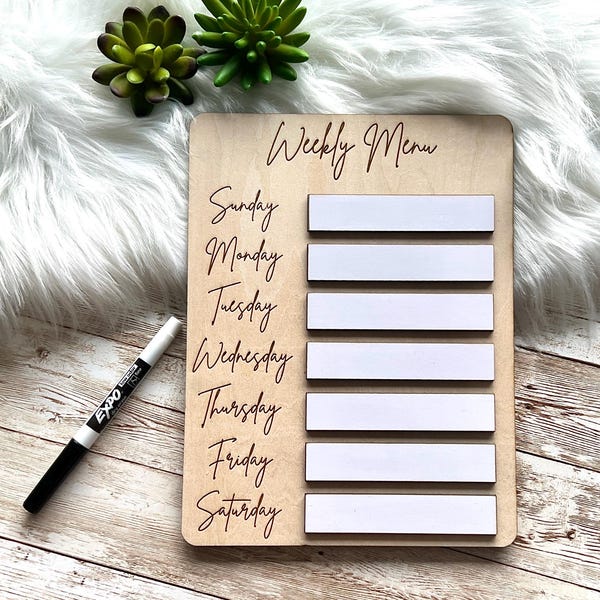 Weekly Menu
Sunday
Monday
Tuesday
Wednesday
Thursday
Friday
Saturday
EXPO